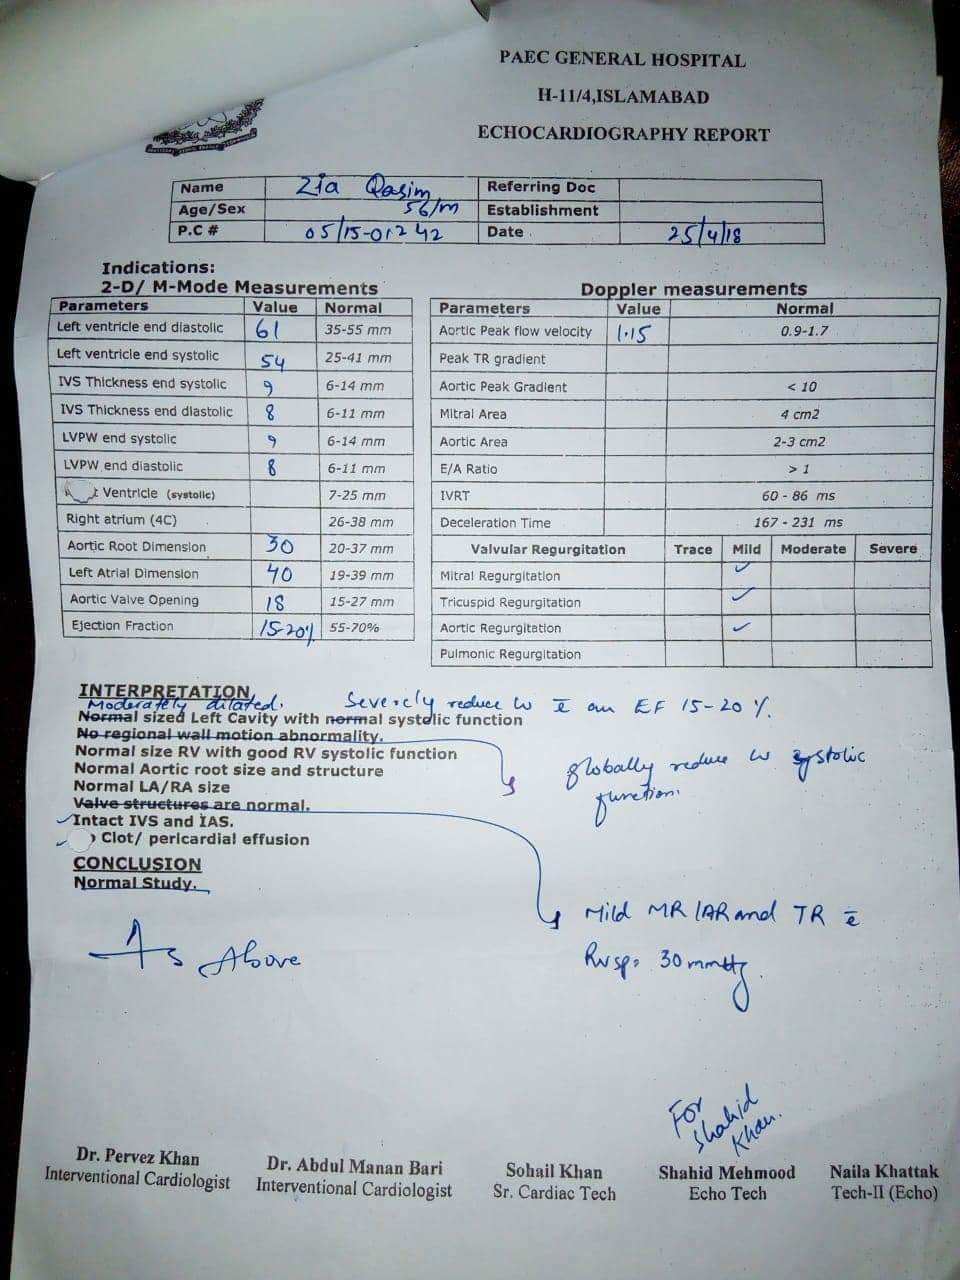 PAEC GENERAL HOSPITAL
H-11/4,ISLAMABAD
ECHOCARDIOGRAPHY REPORT
Name Zia Qasim Referring Doc
Age/Sex 56/m Establishment
P.C # 05/15-01242 Date 25/4/18
Indications:
2-D/ M-Mode Measurements
Parameters Value Normal
Left ventricle end diastolic 61 35-55 mm
Left ventricle end systolic 54 25-41 mm
IVS Thickness end systolic 9 6-14 mm
IVS Thickness end diastolic 8 6-11 mm
LVPW end systolic 9 6-14 mm
LVPW end diastolic 8 6-11 mm
t Ventricle (systolic) 7-25 mm
Right atrium (4C) 26-38 mm
Aortic Root Dimension 30 20-37 mm
Left Atrial Dimension 40 19-39 mm
Aortic Valve Opening 18 15-27 mm
Ejection Fraction 15-20% 55-70%
Doppler measurements
Parameters Value Normal
Aortic Peak flow velocity 1.15 0.9-1.7
Peak TR gradient
Aortic Peak Gradient < 10
Mitral Area 4 cm2
Aortic Area 2-3 cm2
E/A Ratio > 1
IVRT 60 - 86 ms
Deceleration Time 167 - 231 ms
Valvular Regurgitation Trace Mild Moderate Severe
Mitral Regurgitation ✓
Tricuspid Regurgitation ✓
Aortic Regurgitation ✓
Pulmonic Regurgitation
INTERPRETATION
Moderately dilated. Severely reduce LV c̄ an EF 15-20%.
Normal sized Left Cavity with normal systolic function
No regional wall motion abnormality.
Normal size RV with good RV systolic function
globally reduce LV systolic
function.
Normal Aortic root size and structure
Normal LA/RA size
Valve structures are normal.
✓Intact IVS and IAS.
✓ Clot/ pericardial effusion
CONCLUSION
Normal Study.
Mild MR/AR and TR c̄
RVSP= 30mmHg.
As Above
For
Shahid
Khan.
Dr. Pervez Khan
Interventional Cardiologist
Dr. Abdul Manan Bari
Interventional Cardiologist
Sohail Khan
Sr. Cardiac Tech
Shahid Mehmood
Echo Tech
Naila Khattak
Tech-II (Echo)